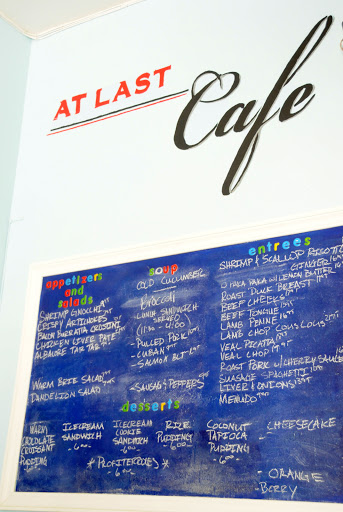 AT LAST
Cafe
appetizers
and
salads
SHRIMP GNOCCHI
CRISPY ARTICHOKES
BURRATA CROSINI
CHICKEN LIVER PATE
ALBACORE TAR TAR
WARM BRIE SALAD
DANDELION SALAD
soup
COLD CUCUMBER
BROCCOLI
LUNCH SANDWICH
(11:30 - 4:00
- PULLED PORK
- CUBAN
- SALMON BLT
- SAUSAGE + PEPPERS
entrees
SHRIMP & SCALLOP RISOTTO
GINGER
OPAKA PAKA W/ LEMON BUTTER
ROAST DUCK BREAST
BEEF CHEEKS
BEEF TONGUE
LAMB PENNE
LAMB CHOP COUS COUS
VEAL PICATTA
VEAL CHOP
ROAST PORK W/ CHERRY SAUCE
SAUSAGE SPAGHETTI
LIVER & ONIONS
MENUDO
desserts
WARM
CHOCOLATE
CROISSANT
PUDDING
ICECREAM
SANDWICH
ICECREAM
COOKIE
SANDWICH
RICE
PUDDING
COCONUT
TAPIOCA
PUDDING
CHEESECAKE
* PROFITEROLES *
- ORANGE
- BERRY